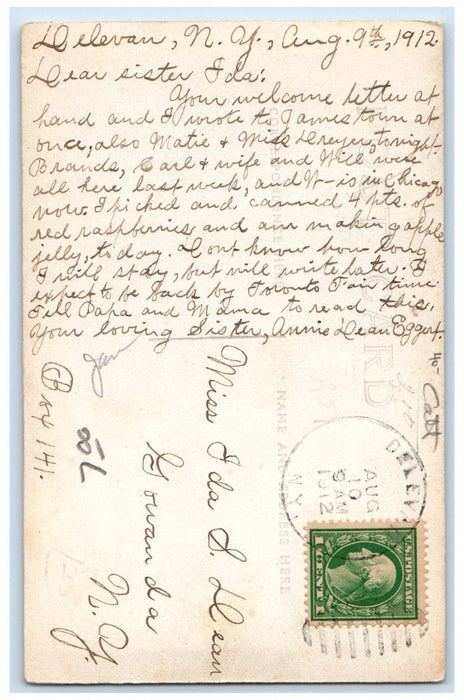 Delevan, N.Y., Aug. 9th, 1912.
Dear sister Ida:
Your welcome letter at
hand and I wrote to Jamestown at
once, also Matie & Miss Dreyer, to night.
Brands, Carl & wife and Will were
all here last week, and W- is in Chicago
now. I picked and canned 4 pts. of
red raspberries and am makin apple
jelly, to day. Dont know how long
I will stay, but will write later. I
expect to be back by Toronto Fair time
Tell Papa and Mama to read this.
Your loving Sister, Annie Dean Eggert.
Miss Ida S. Dean
Gowanda
N.Y.
Box 141.
Jam
700
to
Catt
POST CARD
CORRESPONDENCE HERE
NAME AND ADDRESS HERE
DELEV
AUG
10
9 AM
1912
N.Y.
U.S. POSTAGE
1 CENT 1